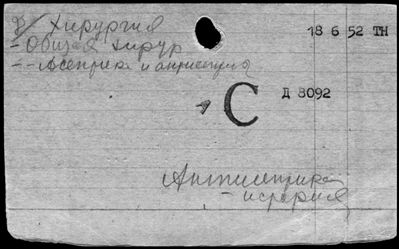 В/ Хирургия 18 6 52 ТН
- Общая хирур
- - Асептика и антисептика
С Д 8092
Антисептика
- история